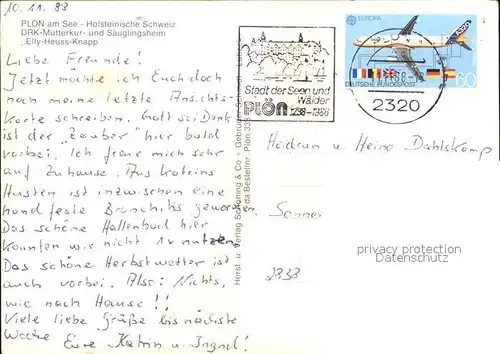 10.11.88
PLÖN am See - Holsteinische Schweiz
DRK-Mütterkur- und Säuglingsheim
„Elly-Heuss-Knapp"
Liebe Freunde!
Jetzt möchte ich Euch doch
noch meine letzte Ansichts-
karte schreiben. Gott sei Dank
ist der "Zauber" hier bald
vorbei. Ich freue mich sehr
auf Zuhause. Aus Katrins
Husten ist inzwischen eine
handfeste Bronchitis geworden.
Das schöne Hallenbad hier
konnten wir nicht 1x nutzen.
Das schöne Herbstwetter ist
auch vorbei. Also: Nichts,
wie nach Hause!!!
Viele liebe Grüße bis nächste
Woche Eure Katrin u. Ingrid!
Herst. u. Verlag Schöning & Co + Gebrüder Schmidt
Bestellnr. Plön
Stadt der Seen und
Wälder
PLÖN 1236-1986
EUROPA
A320
DEUTSCHE BUNDESPOST
60
2320
Heidrun u. Heino Dahlskamp
2838
privacy protection
Datenschutz